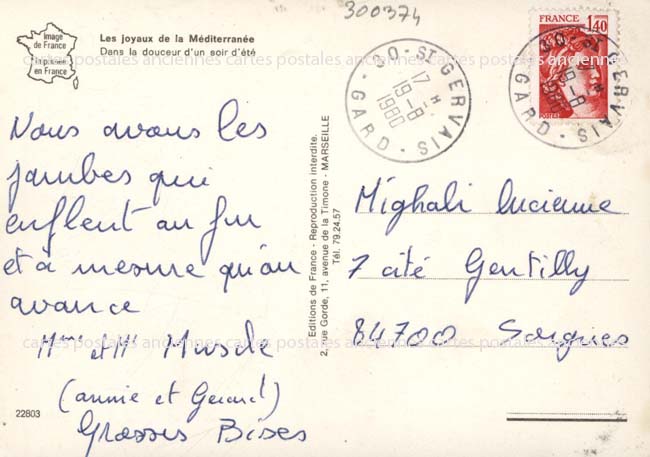 300374
Image
de France
Imprimée
en France
Les joyaux de la Méditerranée
Dans la douceur d'un soir d'été
30 - ST GERVAIS - GARD
17 H
19-8
1980
FRANCE 1,40
30 - ST GERVAIS - GARD
cartes postales anciennes cartes postales anciennes cartes postales anciennes
Nous avons les
jambes qui
enflent au fur
et à mesure qu'on
avance
Mme et Mr Muscle
(annie et Gerard)
Grosses Bises
22803
Editions de France - Reproduction interdite.
2, rue Gorde, 11, avenue de la Timone - MARSEILLE
Tél. 79.24.57
Mighali Lucienne
7 cité Gentilly
84700 Sorgues
cartes postales anciennes cartes postales anciennes cartes postales anciennes